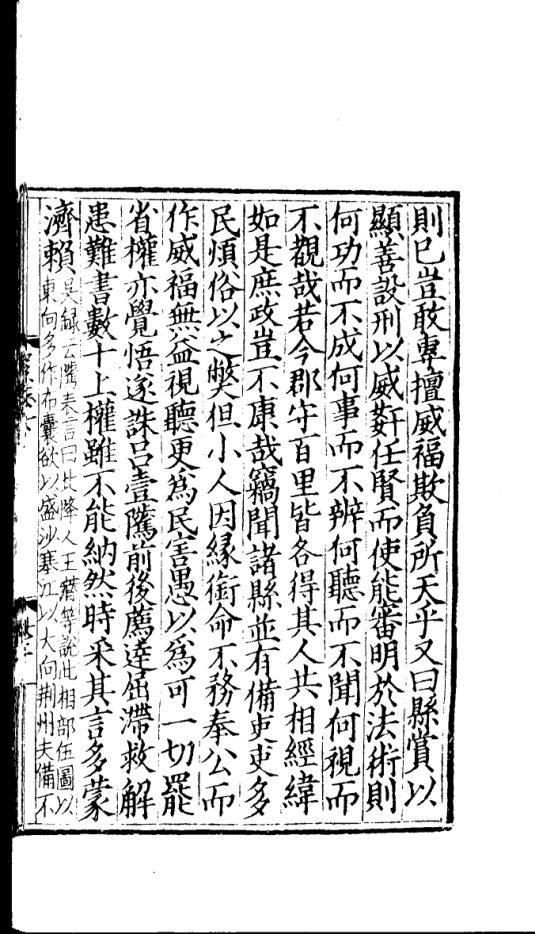 則已豈敢專擅威福欺負所天乎又曰縣賞以
顯善設刑以威姧任賢而使能審明於法術則
何功而不成何事而不辨何聽而不聞何視而
不觀哉若今郡守百里皆各得其人共相經緯
如是庶政豈不康哉竊聞諸縣並有備吏吏多
民煩俗以之弊但小人因緣銜命不務奉公而
作威福無益視聽更為民害愚以為可一切罷
省權亦覺悟遂誅呂壹隲前後薦達屈滯救解
患難書數十上權雖不能納然時采其言多蒙
濟賴
吳録云隲表言曰北降人王潛等說北相部伍圖以
東向多作布囊欲以盛沙塞江以大向荆州夫備不